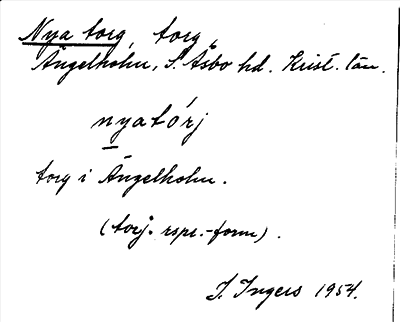 Nya torg, torg,
Ängelholm, S. Åsbo hd. Krist. län.
nyatórj
torg i Ängelholm.
(torj. rspr.-form).
I. Ingers 1954.